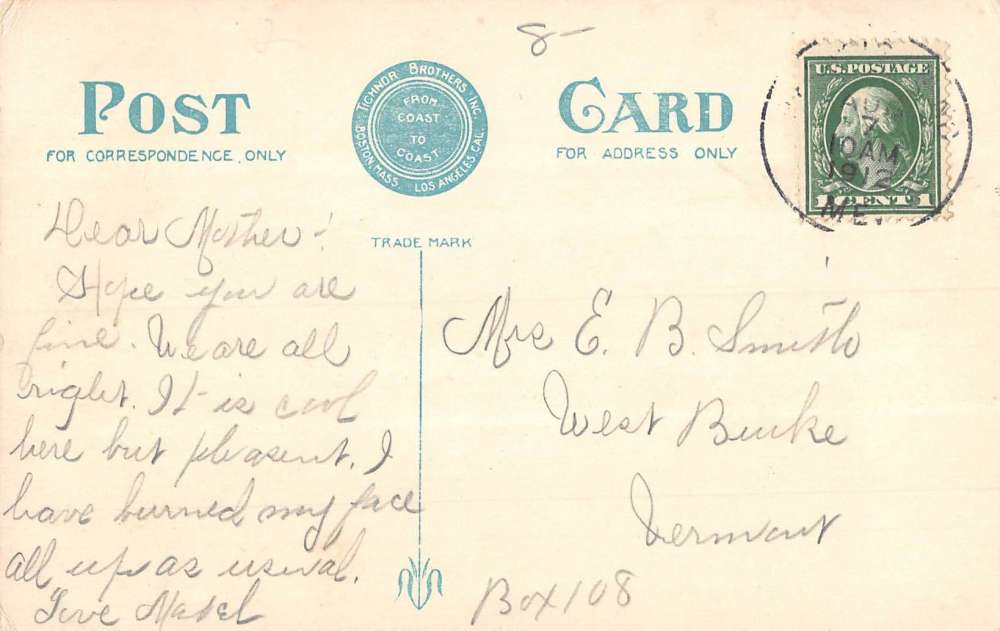 8-
POST CARD
FOR CORRESPONDENCE ONLY
FOR ADDRESS ONLY
TICHNOR BROTHERS, INC.
BOSTON, MASS. LOS ANGELES, CAL.
FROM
COAST
TO
COAST
TRADE MARK
U.S. POSTAGE
1 CENT 1
7
10 AM
1912
ME.
Dear Mother:
Hope you are
fine. We are all
right. It is cool
here but pleasent. I
have burned my face
all up as usual.
Love Mabel
Mrs E. B. Smith
West Burke
Vermont
Box 108